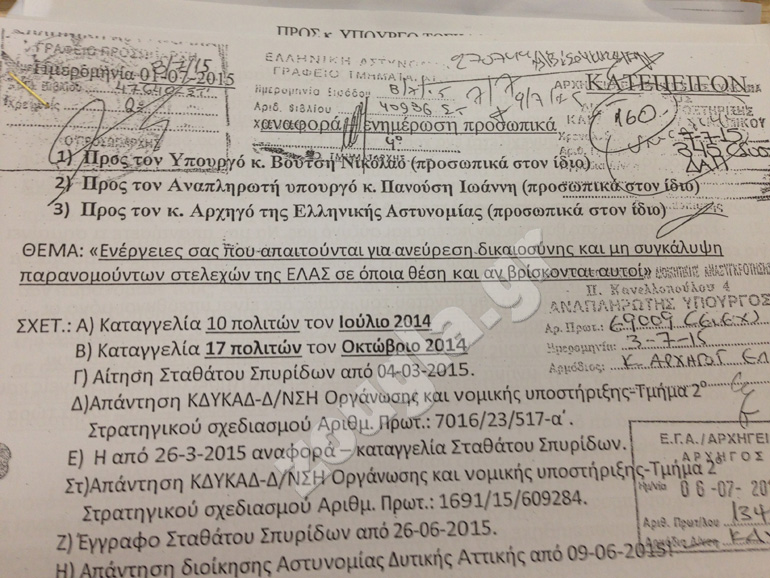 ΠΡΟΣ κ. ΥΠΟΥΡΓΟ
ΓΡΑΦΕΙΟ
ΕΛΛΗΝΙΚΗ ΑΣΤΥΝΟΜ
ΓΡΑΦΕΙΟ ΤΜΗΜΑΤ
Ημερομηνία 01-07-2015
ΚΑΤΕΠΕΙΓΟΝ
Ημερομηνία Εισόδου 8/7/15
Αριθ. Βιβλίου 40936
47640
9/7/15
160
χαναφορά ενημέρωση προσωπικά
1) Προς τον Υπουργό κ. Βούτση Νικόλαο (προσωπικά στον ίδιο)
2) Προς τον Αναπληρωτή υπουργό κ. Πανούση Ιωάννη (προσωπικά στον ίδιο)
3) Προς τον κ. Αρχηγό της Ελληνικής Αστυνομίας (προσωπικά στον ίδιο)
ΘΕΜΑ: «Ενέργειες σας που απαιτούνται για ανεύρεση δικαιοσύνης και μη συγκάλυψη
παρανομούντων στελεχών της ΕΛΑΣ σε όποια θέση και αν βρίσκονται αυτοί»
Π. Κανελλοπούλου 4
ΑΝΑΠΛΗΡΩΤΗΣ ΥΠΟΥΡΓΟΣ
Αρ. Πρωτ.: 69009
Ημερομηνία: 3-7-15
Αρμόδιος: κ ΑΡΧΗΓΟΣ ΕΛ
ΣΧΕΤ.: Α) Καταγγελία 10 πολιτών τον Ιούλιο 2014
Β) Καταγγελία 17 πολιτών τον Οκτώβριο 2014
Γ) Αίτηση Σταθάτου Σπυρίδων από 04-03-2015.
Δ)Απάντηση ΚΔΥΚΑΔ-Δ/ΝΣΗ Οργάνωσης και νομικής υποστήριξης-Τμήμα 2ο
Στρατηγικού σχεδιασμού Αριθμ. Πρωτ.: 7016/23/517-α΄.
Ε) Η από 26-3-2015 αναφορά – καταγγελία Σταθάτου Σπυρίδων.
Στ)Απάντηση ΚΔΥΚΑΔ-Δ/ΝΣΗ Οργάνωσης και νομικής υποστήριξης-Τμήμα 2
Στρατηγικού σχεδιασμού Αριθμ. Πρωτ.: 1691/15/609284.
Ζ) Έγγραφο Σταθάτου Σπυρίδων από 26-06-2015.
Η) Απάντηση διοίκησης Αστυνομίας Δυτικής Αττικής από 09-06-2015.
Ε.Γ.Α./ΑΡΧΗΓΕΙ
ΑΡΧΗΓΟΣ
06-07-20
Αριθ. Πρωτ/λου 134
zougla.gr